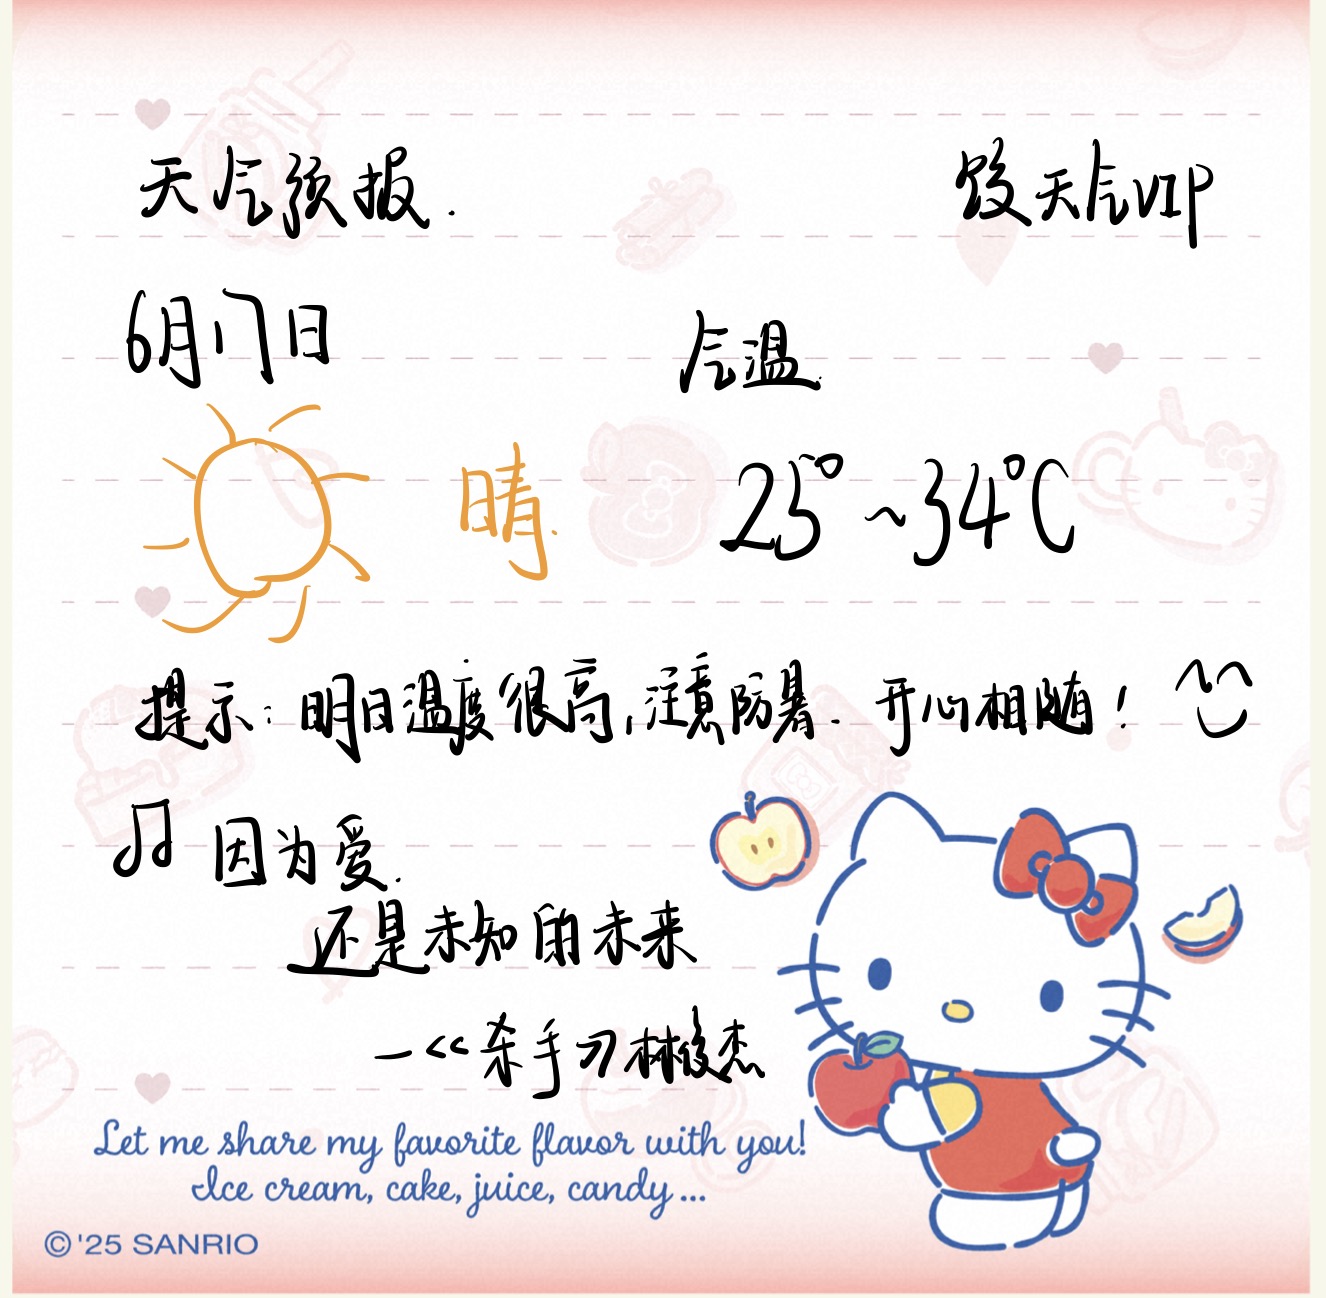 天气预报.
饺天气VIP
6月17日
气温
晴.
25°~34°C
提示:明日温度很高,注意防暑.开心相随!
因为爱.
还是未知的未来
—<<杀手>>林俊杰
Let me share my favorite flavor with you!
Ice cream, cake, juice, candy...
©'25 SANRIO